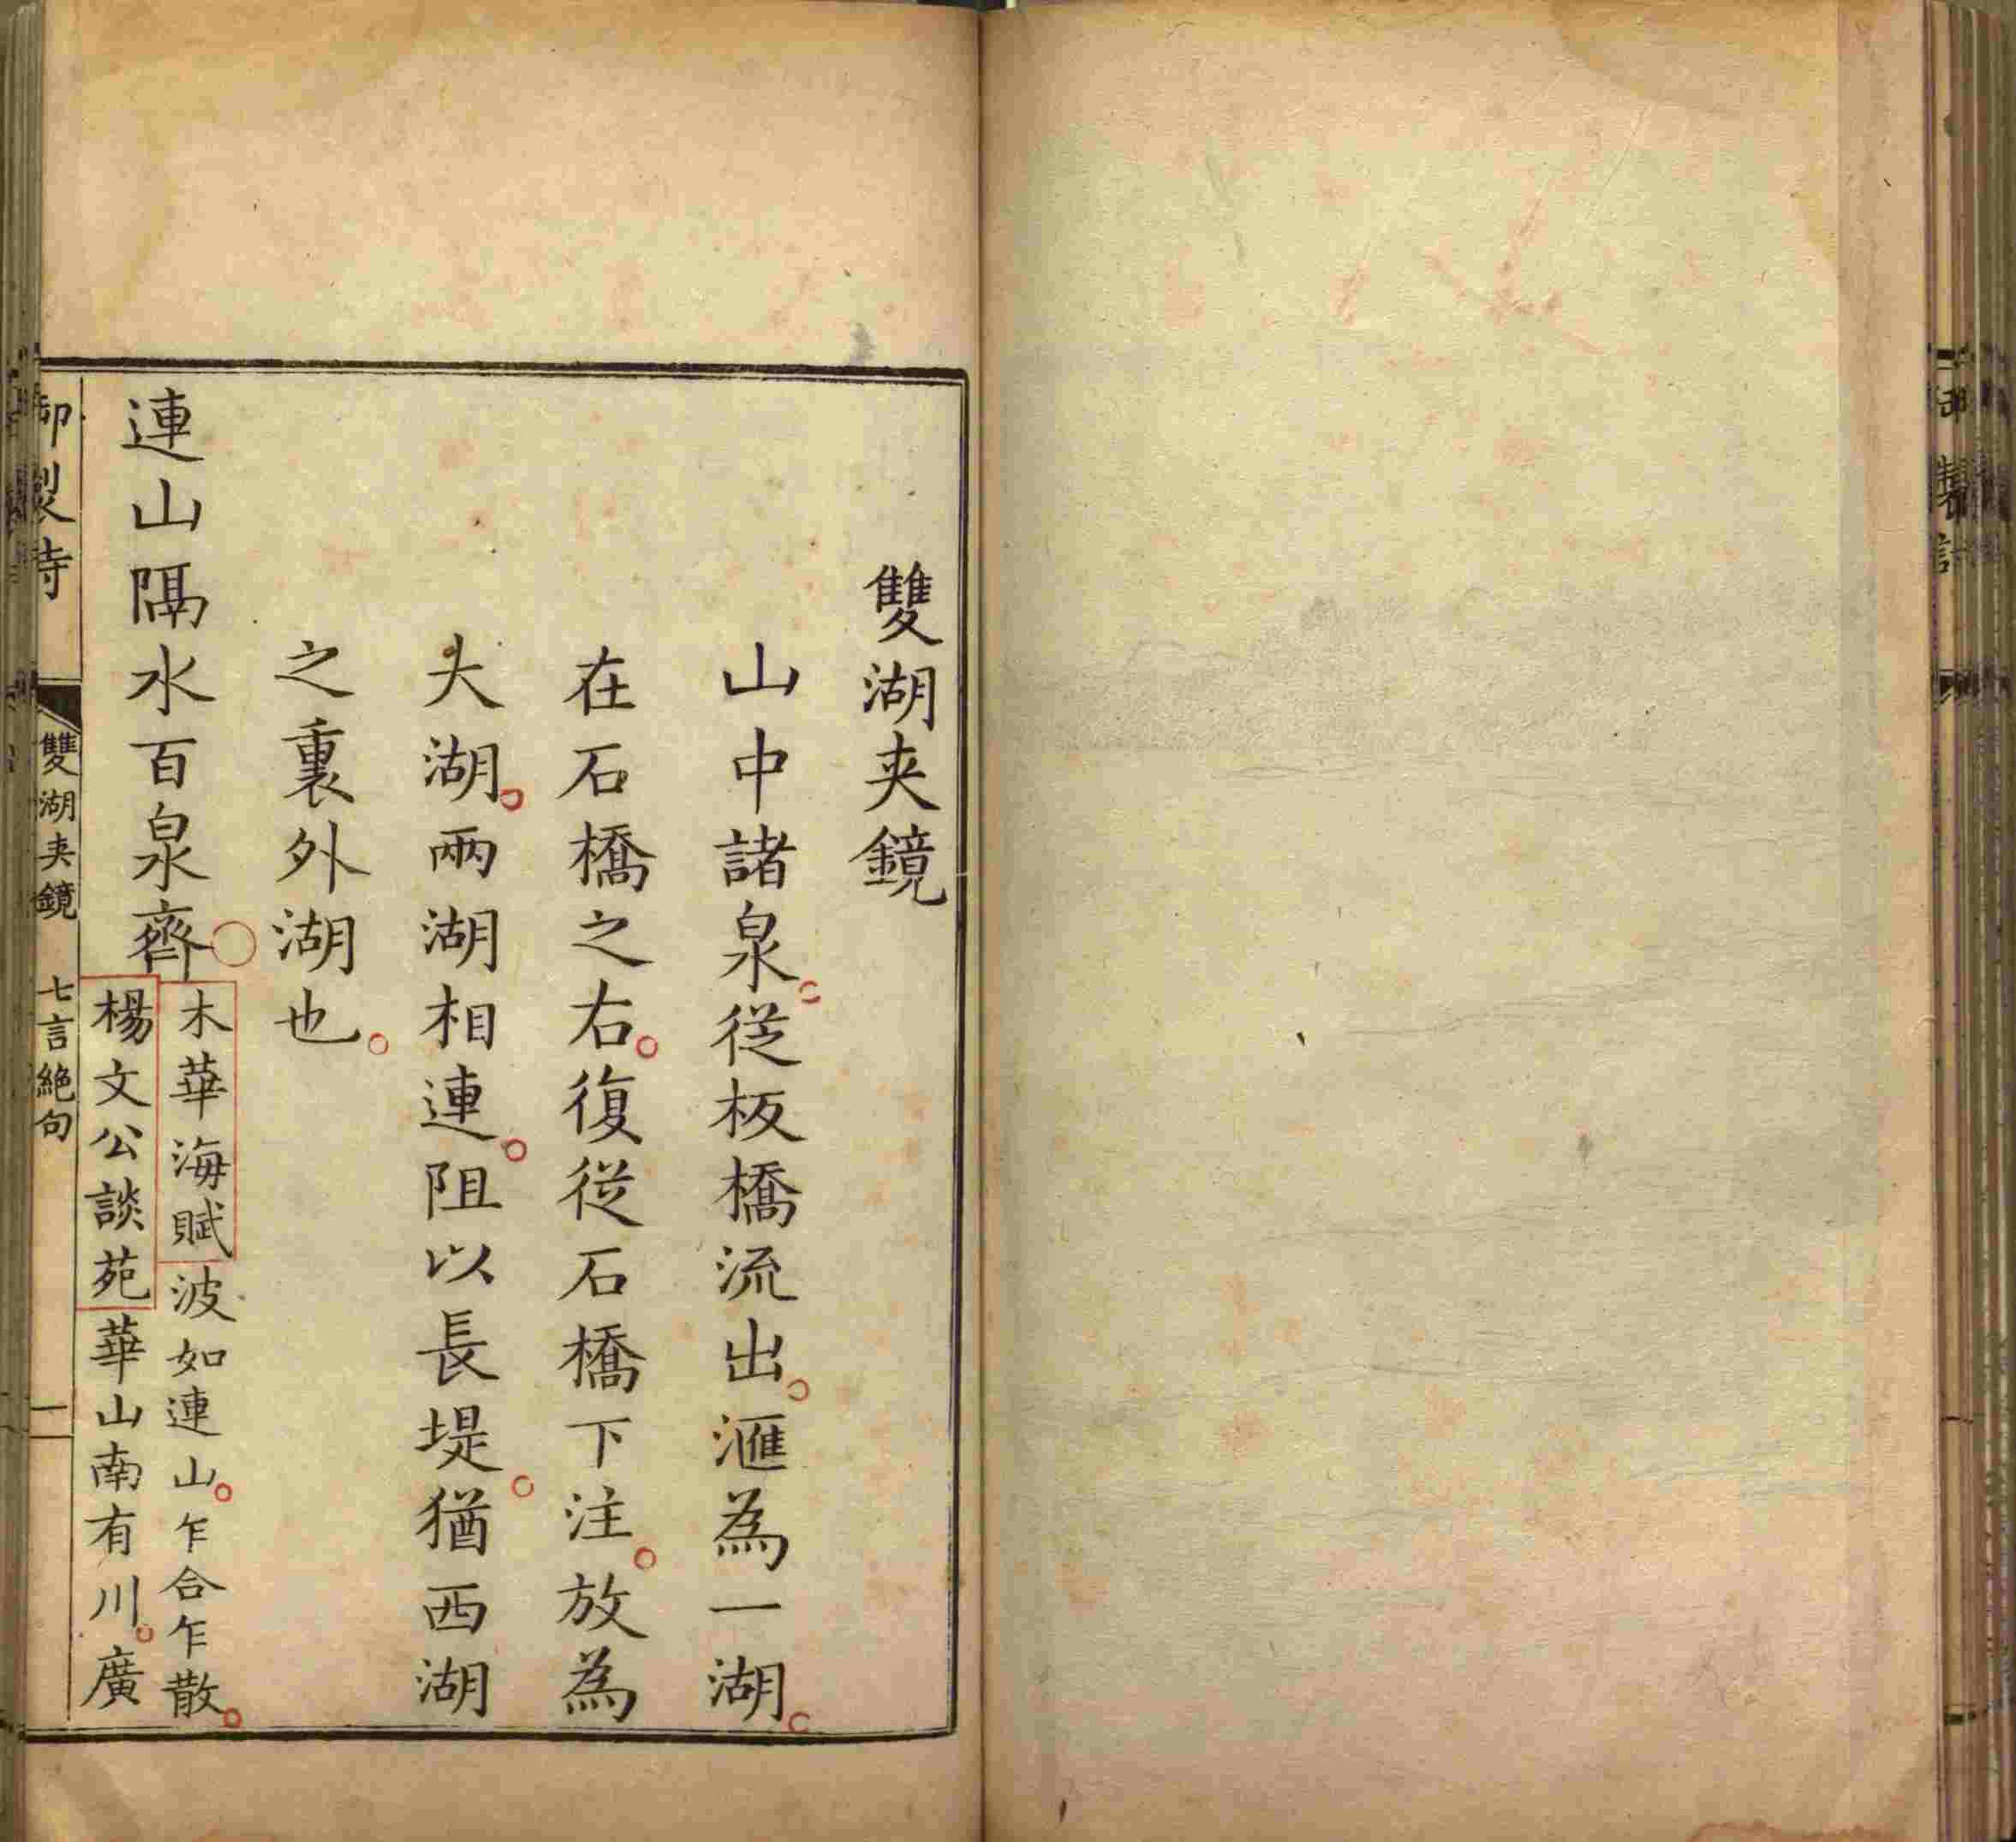 雙湖夾鏡
山中諸泉。從板橋流出。滙為一湖。
在石橋之右。復從石橋下注。放為
大湖。兩湖相連。阻以長堤。猶西湖
之裏外湖也。
連山隔水百泉齊
木華海賦波如連山。乍合乍散。
楊文公談苑華山南有川。廣
御製詩
雙湖夾鏡 七言絶句
一